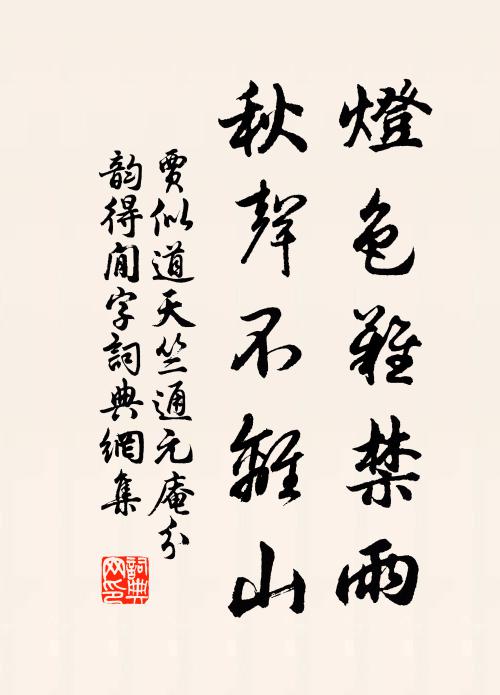 燈色難禁雨
秋聲不離山
賈似道天竺通元庵分
韵得閒字詞典網集
詞典
网印